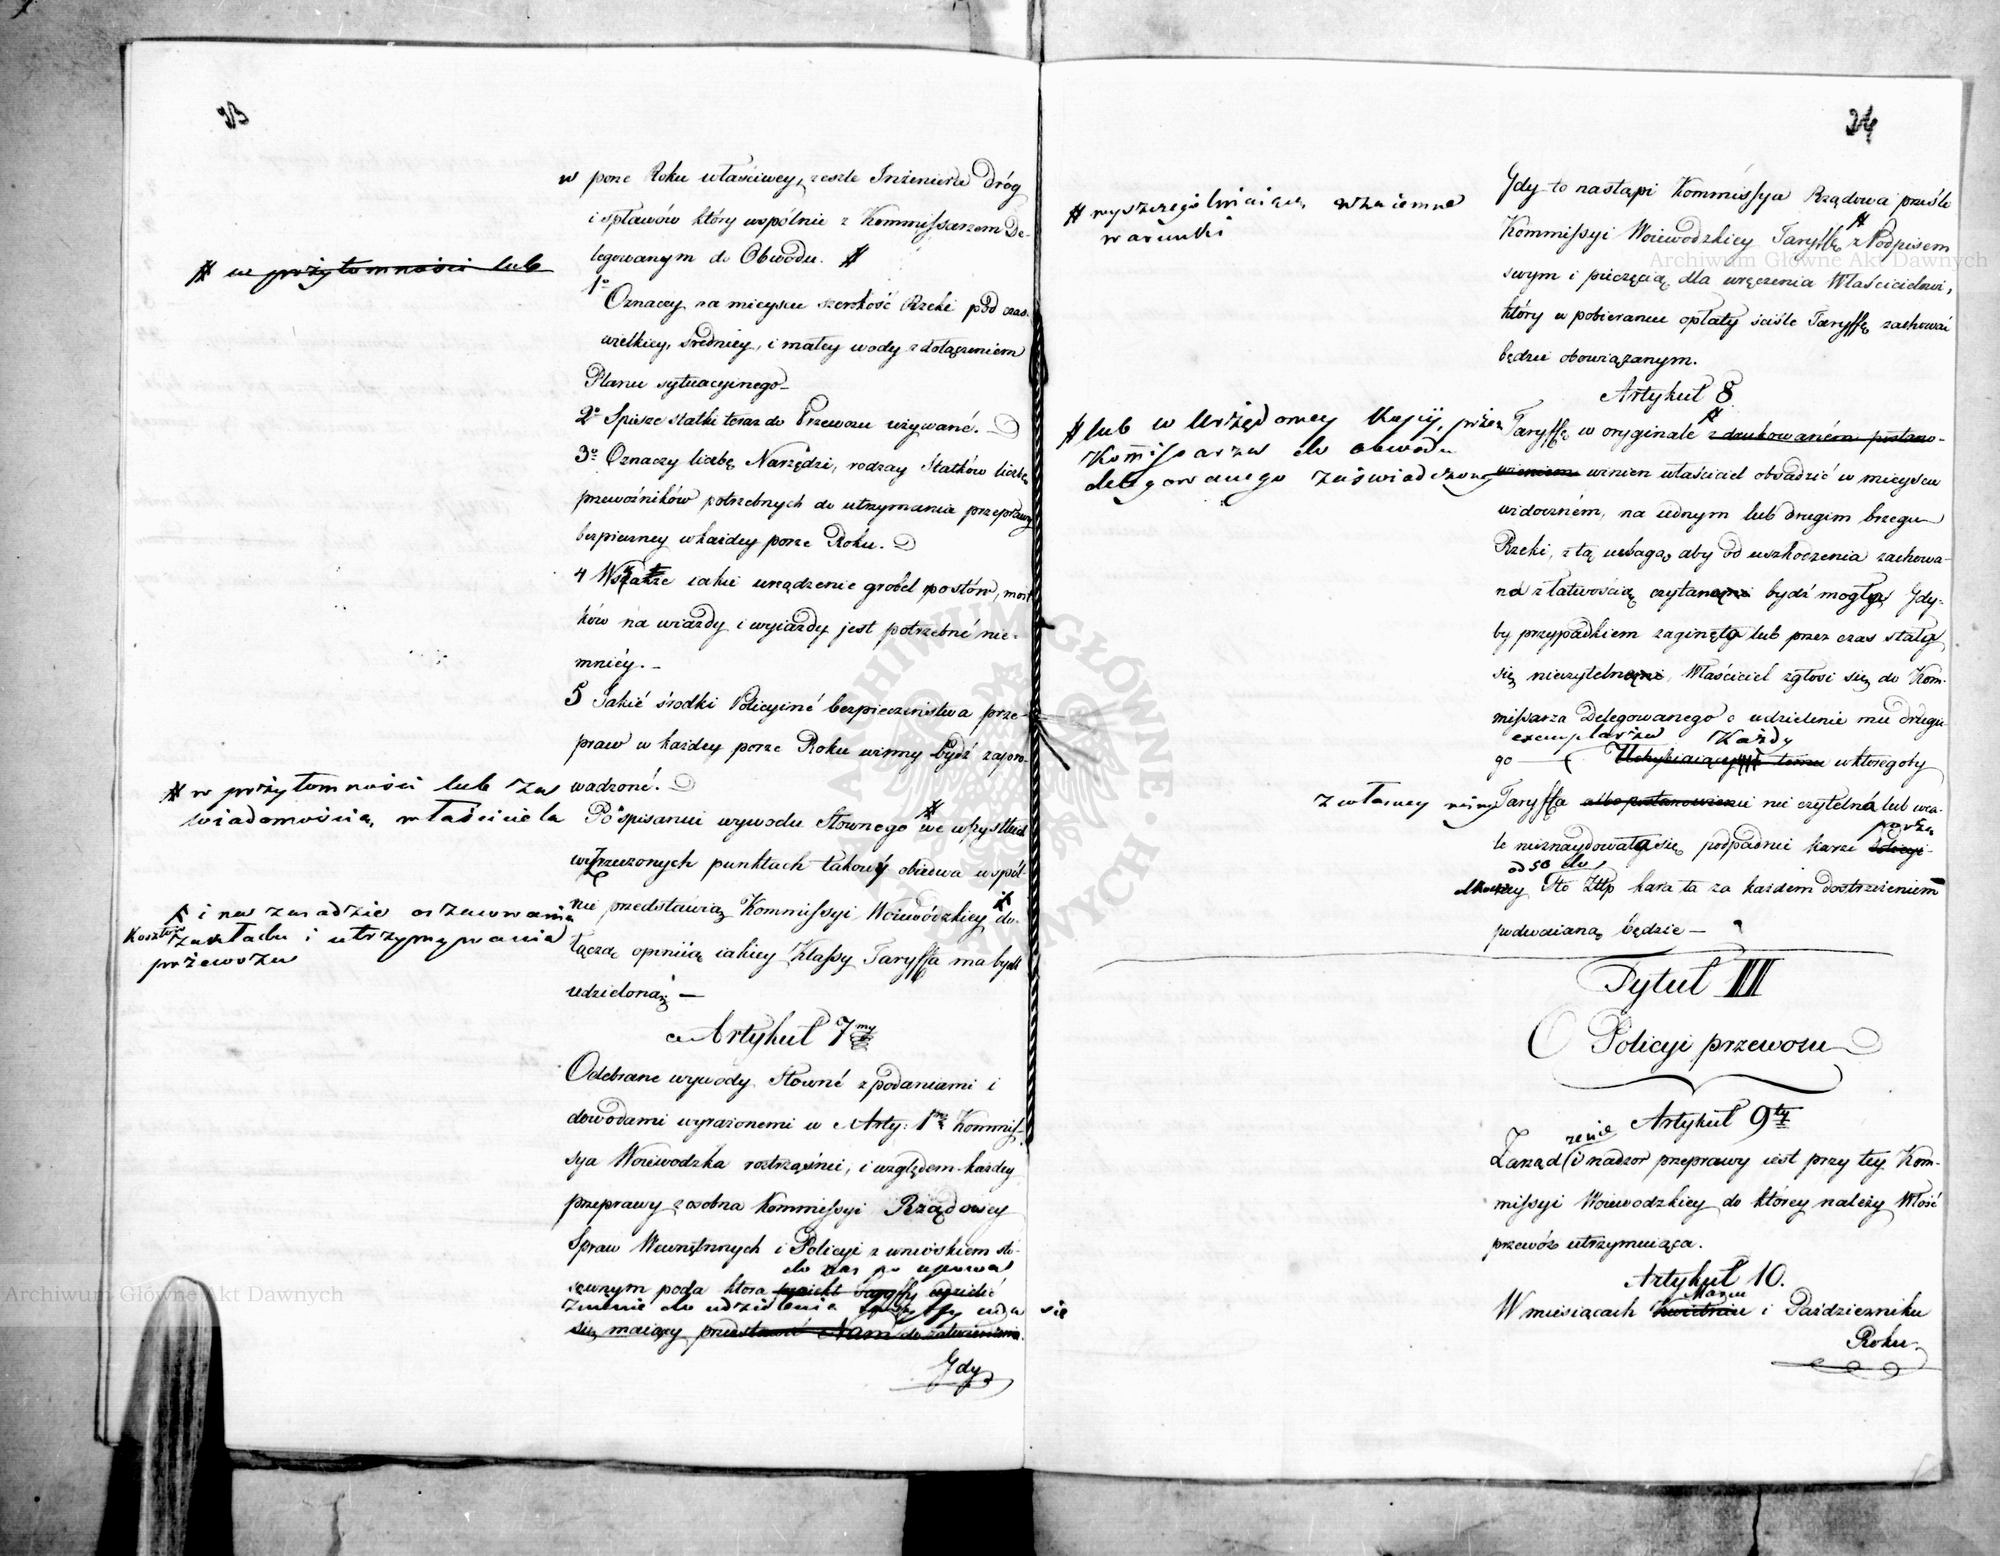 23
w porze Roku właściwey, zeszle Inżeniera dróg
i spławów który wspólnie z Kommissarzem De-
legowanym do Obwodu. #
# w przytomności lub
1o Oznaczy na mieyscu szerokość Rzeki pod czas
wielkiey, średniey, i małey wody z dołączeniem
Planu sytuacyinego
2o Spisze statki teraz do Przewozu używané.
3o Oznaczy liczbę Narzędzi, rodzay Statków liczbę
przewoźników potrzebnych do utrzymania przeprawy
bezpieczney w każdey porze Roku.
4 Wskaże iakie urządzenie grobel postów, most
ków na wiazdy i wyiazdy jest potrzebné nie-
mniéy.
5 Jakié środki Policyiné bezpieczeństwa prze-
praw w każdey porze Roku winny bydź zapro-
wadzoné.
# w przytomności lub za
wiadomością właściciela
Po spisaniu wywodu słownego # we wszystkich
wyrzeczonych punktach takowy obiedwa wspól-
nie przedstawią Kommissyi Woiewódzkiey # do-
łączą opiniią iakiey Klassy Taryffa ma bydź
udzieloną
# i na zasadzie oszacowania
kosztów zakładu i utrzymywania
przewozu
Artykuł 7my
Odebrane wywody słowné z podaniami i
dowodami wyrażonemi w Arty: 1m Kommis-
sya Woiewodzka roztrząśnie, i względem każdey
przeprawy z osobna Kommissyi Rządowey
Spraw Wewnętrznych i Policyi z wnioskiem sto-
do nas po upowa
sownym poda która projekt Taryffy udzielić
żnienie do udzielenia Taryffy uda się
się maiący przedstawi Nam do zatwierdzenia.
Gdy
24
Gdy to nastąpi Kommissya Rządowa prześle
Kommissyi Woiewodzkiey Taryffę # z Podpisem
swym i pieczęcią dla wręczenia Właścicielowi,
który w pobieraniu opłaty ściśle Taryffę zachować
będzie obowiązanym.
# wyszczególniaiącą wzaiemne
warunki
Artykuł 8
Taryffę w oryginale # z drukowaném postano-
wieniem winien właściciel obsadzić w mieyscu
widoczném, na iednym lub drugim brzegu
Rzeki, z tą uwagą aby od uszkodzenia zachowa-
na z łatwością czytaną bydź mogła Gdy-
by przypadkiem zaginęła lub przez czas stała
się nieczytelną, Właściciel zgłosi się do Kom-
missarza Delegowanego o udzielenie mu drugie
exemplarza Każdy
go Uchybiaiący temu u którego by
# lub w Urzędowey kopij, przez
Kommissarza do obwodu
delegowanego zaświadczoney
z własney winy Taryffa albo postanowienie nie czytelna lub wca-
le nieznaydowała się, podpadnie karze
od 50 do
Sto Złłp kara ta za każdem dostrzeżeniem
podwaianą będzie
Tytuł III
O Policyi przewozu
Artykuł 9ty
Zarząd(zenie i nadzor przeprawy iest przy tey Kom-
missyi Woiewodzkiey do którey należy Włość
przewóz utrzymuiąca.
Artykuł 10.
Marcu
W miesiącach Kwietniu i Październiku
Roku
Archiwum Główne Akt Dawnych
Archiwum Główne Akt Dawnych
ARCHIWUM GŁÓWNE AKT DAWNYCH